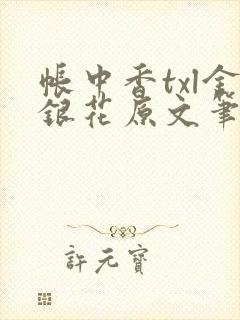 帳中香txl金
銀花原文筆
許元寶